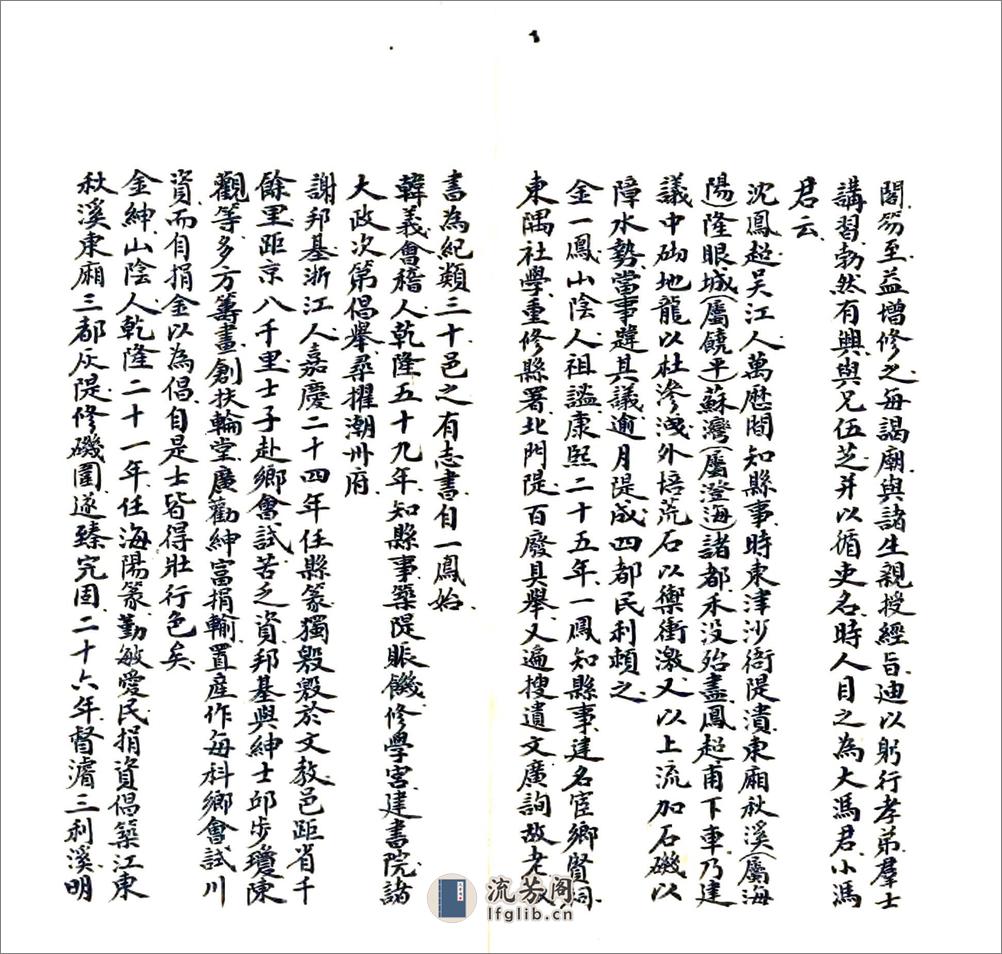 閣笏至益增修之每謁廟與諸生親授經旨迪以躬行孝弟羣士
講習勃然有興與兄伍芝并以循吏名時人目之為大馮君小馮
君云
沈鳳超吴江人萬歷間知縣事時東津沙衙隄潰東廂秋溪(屬海
陽)隆眼城(屬饒平)蘇灣(屬澄海)諸都禾没殆盡鳳超甫下車乃建
議中砌地龍以杜滲洩外培荒石以禦衝激又以上流加石磯以
障水勢當事韙其議逾月隄成四都民利賴之
金一鳳山陰人祖諡康熙二十五年一鳳知縣事建名宦鄉賢祠
東隅社學重修縣署北門隄百廢具舉又遍搜遺文廣詢故老
書為紀類三十邑之有志書自一鳳始
韓義會稽人乾隆五十九年知縣事築隄賑饑修學宮建書院諸
大政次第倡舉尋擢潮州府
謝邦基浙江人嘉慶二十四年任縣篆獨殷殷於文教邑距省千
餘里距京八千里士子赴鄉會試苦乏資邦基與紳士邱步瓊陳
觀等多方籌畫創扶輪堂廣勸紳富捐輸置産作每科鄉會試川
資而自捐金以為倡自是士皆得壯行色矣
金紳山陰人乾隆二十一年任海陽篆勤敏愛民捐資倡築江東
秋溪東廂三都灰隄修磯圍遂臻完固二十六年督濬三利溪明
流芳阁
lfglib.cn